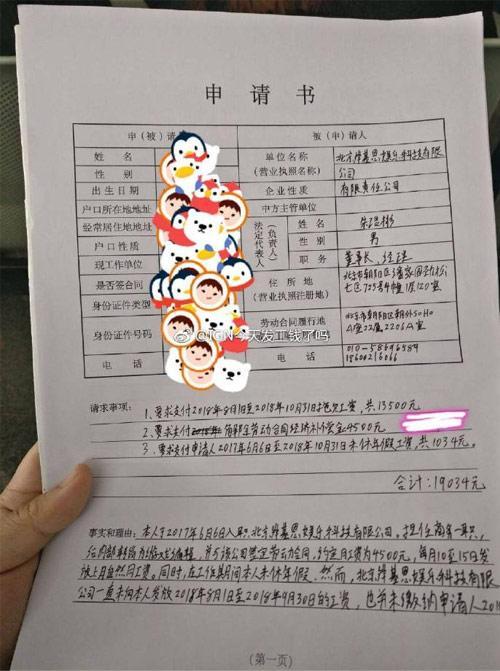 申请书
申(被)请
被(申)请人
姓名
单位名称
(营业执照名称)
有限
公司
性别
出生日期
企业性质
有限责任公司
户口所在地地址
中方主管单位
经常居住地地址
法定代表人
(负责人)
姓名
户口性质
性别
男
现工作单位
职务
董事长、经理
是否签合同
住所地
(营业执照注册地)
身份证件类型
身份证件号码
劳动合同履行地
@IGN今天发工钱了吗
电话
电话
010-58696584
18600216066
请求事项:
1、要求支付2018年8月1日至2018年10月31日拖欠工资,共13500元
2、要求支付 劳动合同经济补偿金4500元
3、要求支付申请人2017年6月6日至2018年10月31日未休年假工资,共1034元。
合计:19034元
事实和理由:本人于2017年6月6日入职北京 娱乐科技有限公司,担任商务一职,
并与该公司签定劳动合同,约定月工资为4500元,每月10至15日发
放上月自然月工资。同时,在工作期间本人未休年假。然而,北京 娱乐科技有限
公司一直未向本人发放2018年8月1日至2018年9月30日的工资,也并未缴纳申请人201
(第一页)